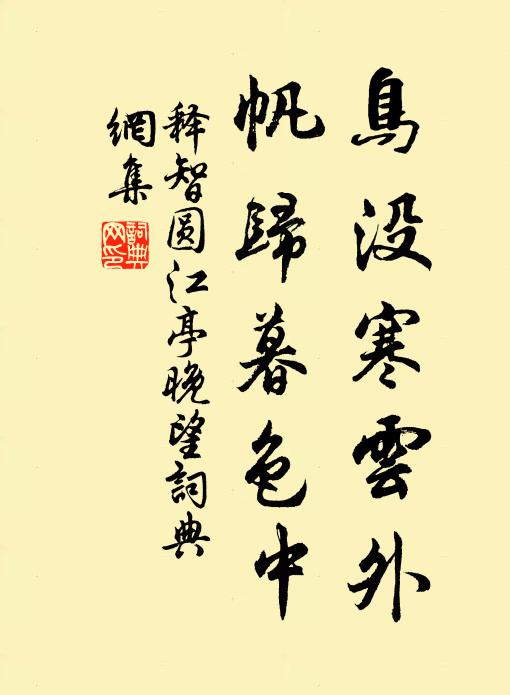 鳥没寒雲外
帆歸暮色中
释智圆江亭晚望詞典
網集
詞典网印